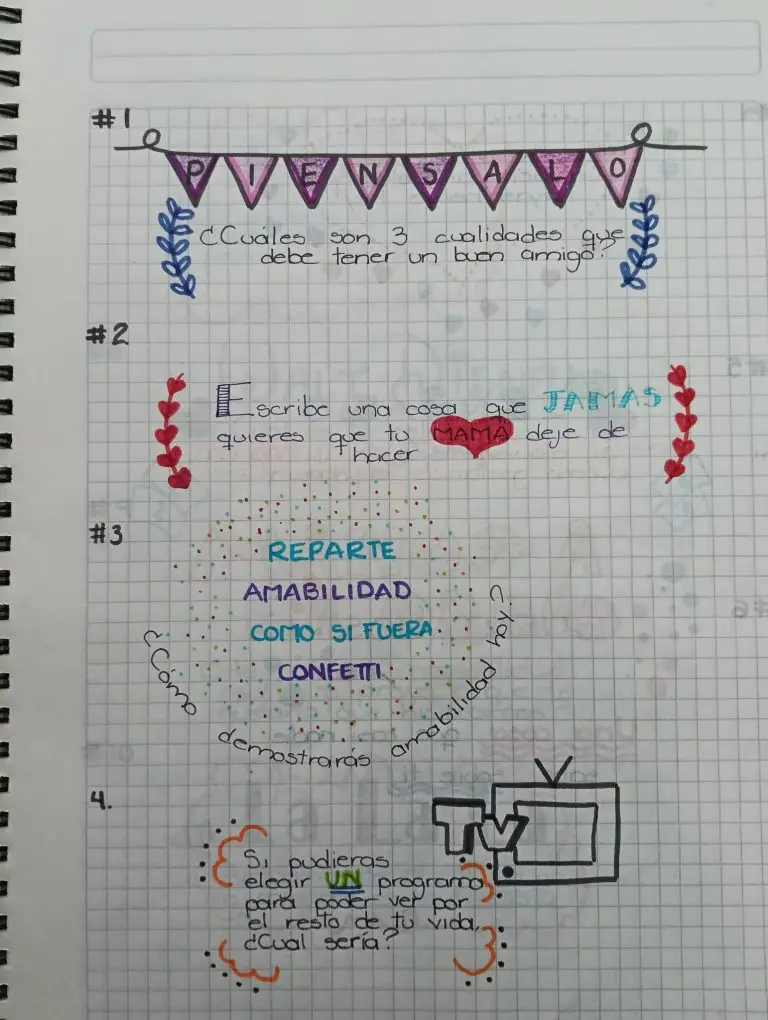 #1
PIENSALO
¿Cuáles son 3 cualidades que
debe tener un buen amigo?
#2
Escribe una cosa que JAMAS
quieres que tu MAMÁ deje de
hacer
#3
REPARTE
AMABILIDAD
COMO SI FUERA
CONFETTI
¿Cómo demostrarás amabilidad hoy?
4.
TV
Si pudieras
elegir UN programa
para poder ver por
el resto de tu vida.
¿Cual sería?